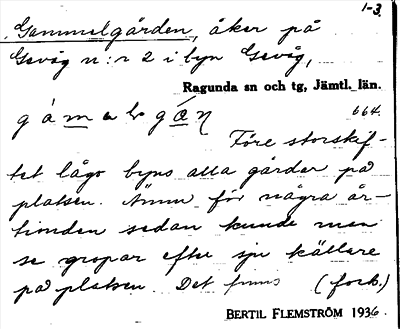 1-3.
Gammelgården, åker på
Gevåg n:r 2 i byn Gevåg,
Ragunda sn och tg, Jämtl. län.
664.
Före storskif-
tet lågo byns alla gårdar på
platsen. Ännu för några år-
tionden sedan kunde man
se gropar efter sju källare
på platsen. Det finns (forts.)
BERTIL FLEMSTRÖM 1936.